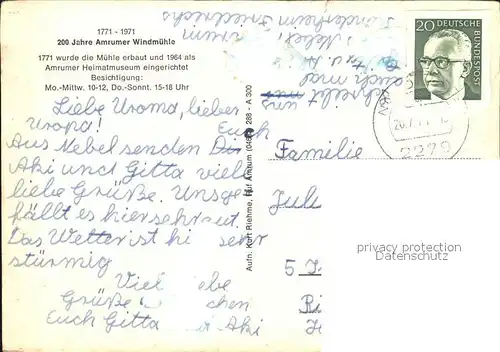 1771 - 1971
200 Jahre Amrumer Windmühle
1771 wurde die Mühle erbaut und 1964 als
Amrumer Heimatmuseum eingerichtet
Besichtigung:
Mo.-Mittw. 10-12, Do.-Sonnt. 15-18 Uhr
Liebe Uroma, lieber
Uropa!
Euch
Aus Nebel senden Dir
Aki und Gitta viele
liebe Grüße. Uns ge-
fällt es hier sehr gut.
Das Wetter ist hi sehr
stürmig
Viel ebe
Grüße chen
Euch Gitta Aki
Aufn. Kurt Riehme, Ruf Amrum (046 288 - A 300
schreibt
auch mal
uns
Nebel
Kinderheim Friedrichs
20 DEUTSCHE
BUNDESPOST
2279
Familie
Jul
5
Ri
privacy protection
Datenschutz